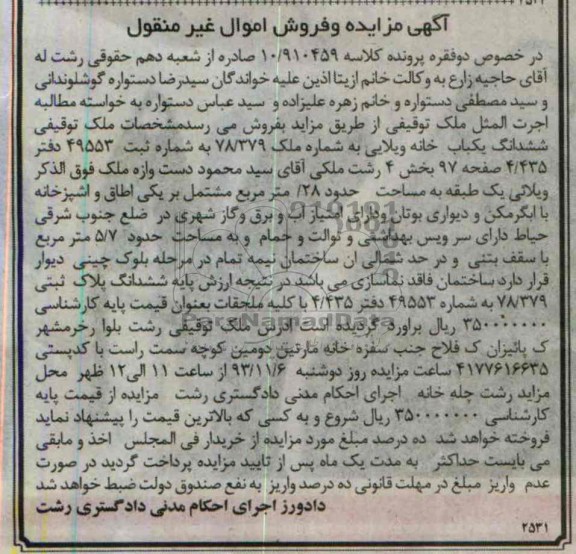 آگهی مزایده وفروش اموال غیر منقول
در خصوص دوفقره پرونده کلاسه ۱۰/۹۱۰۴۵۹ صادره از شعبه دهم حقوقی رشت له
آقای حاجیه زارع به وکالت خانم ازیتا اذین علیه خواندگان سیدرضا دستواره گوشلوندانی
و سید مصطفی دستواره و خانم زهره علیزاده و سید عباس دستواره به خواسته مطالبه
اجرت المثل ملک توقیفی از طریق مزاید بفروش می رسدمشخصات ملک توقیفی
ششدانگ یکباب خانه ویلایی به شماره ملک ۷۸/۳۷۹ به شماره ثبت ۴۹۵۵۳ دفتر
۴/۴۳۵ صفحه ۹۷ بخش ۴ رشت ملکی آقای سید محمود دست وازه ملک فوق الذکر
ویلائی یک طبقه به مساحت حدود ۲۸/ متر مربع مشتمل بر یکی اطاق و اشپزخانه
با ابگرمکن و دیواری بوتان ودارای امتیاز آب و برق وگاز شهری در ضلع جنوب شرقی
حیاط دارای سر ویس بهداشتی و توالت و حمام و به مساحت حدود ۵/۷ متر مربع
با سقف بتنی و در حد شمالی ان ساختمان نیمه تمام در مرحله بلوک چینی دیوار
قرار دارد ساختمان فاقد نماسازی می باشد در نتیجه ارزش پایه ششدانگ پلاک ثبتی
۷۸/۳۷۹ به شماره ۴۹۵۵۳ دفتر ۴/۴۳۵ با کلیه ملحقات بعنوان قیمت پایه کارشناسی
۳۵۰۰۰۰۰۰۰ ریال براورد گردیده است ادرس ملک توقیفی رشت بلوا رخرمشهر
ک پائیزان ک فلاح جنب سفره خانه مارتین دومین کوچه سمت راست با کدپستی
۴۱۷۷۶۱۶۶۳۵ ساعت مزایده روز دوشنبه ۹۳/۱۱/۶ از ساعت ۱۱ الی۱۲ ظهر محل
مزاید رشت چله خانه اجرای احکام مدنی دادگستری رشت مزایده از قیمت پایه
کارشناسی ۳۵۰۰۰۰۰۰۰ ریال شروع و به کسی که بالاترین قیمت را پیشنهاد نماید
فروخته خواهد شد ده درصد مبلغ مورد مزایده از خریدار فی المجلس اخذ و مابقی
می بایست حداکثر به مدت یک ماه پس از تایید مزایده پرداخت گردید در صورت
عدم واریز مبلغ در مهلت قانونی ده درصد واریز به نفع صندوق دولت ضبط خواهد شد
دادورز اجرای احکام مدنی دادگستری رشت
۲۵۳۱